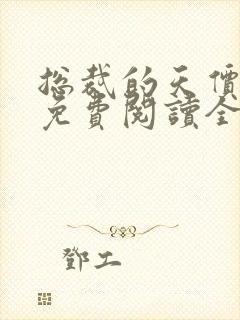 总裁的天價
免費閱讀全
鄧工